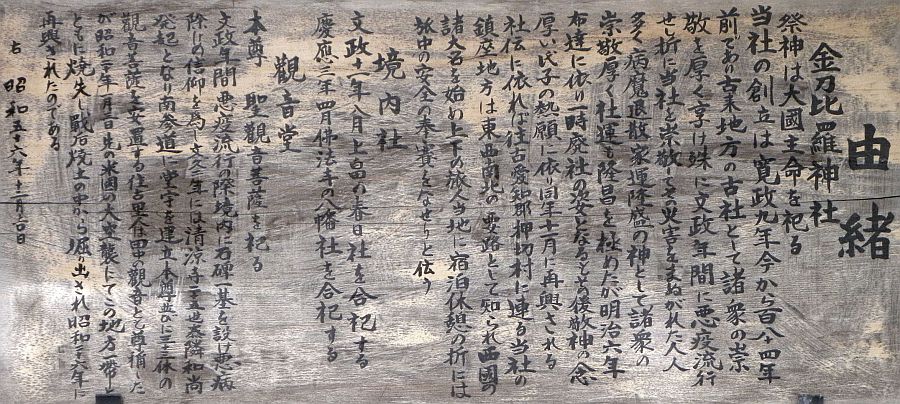 由緒
金刀比羅神社
祭神は大國主命を祀る
当社の創立は寛政九年今から百八十四年
前であり古来地方の古社として諸衆の崇
敬を厚く享け殊に文政年間に悪疫流行
せし折に当社を崇敬して其の災害をまぬがれた人人
多く病魔退散家運隆盛の神として諸衆の
崇敬厚く社運も隆昌を極めたが明治六年
布達に依り一時廃社の姿となるとも後敬神の念
厚い氏子の熱願に依り同年十一月に再興される
社伝に依れば往古愛知郡押切村に連る当社の
鎮座地方は東西南北の要路として知られ西國の
諸大名を始め上下の旅人当地に宿泊休憩の折には
旅中の安全の奉賽をなせりと伝う
境内社
文政十一年八月上畠の春日社を合祀する
慶應三年四月佛法寺の八幡社を合祀する
觀音堂
本尊 聖觀音菩薩を祀る
文政年間悪疫流行の際境内に石碑一基を設け悪病
除けの信仰を為し文久三年には清凉寺世玄隣和尚
発起となり南参道に堂宇を建立本尊並びに三十三体の
観音菩薩を安置する往古里俗田中觀音と尊稱した
が昭和二十年の米國の大空襲にてこの地方一帯と
ともに焼失し戰后焼土の中から掘り出され昭和三十六年に
再興されたのである
右 昭和五十六年十二月吉日